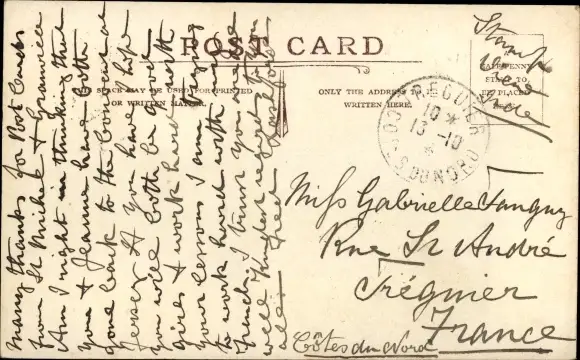 POST CARD
THIS SPACE MAY BE USED FOR PRINTED
OR WRITTEN MATTER.
ONLY THE ADDRESS TO BE
WRITTEN HERE.
Many thanks for Post Cards
from St Michel & Granville
Am I right in thinking that
you & Jeanne have both
gone back to the Convent at
Jersey. If you have I hope
you will both be good
girls & work hard with
your lessons I am trying
to work hard with my
French. I trust you are
well Kindest regards to you
all
Fred
Stamp
other
side
HALFPENNY
STAMP TO
BE PLACED
HERE
TRÉGUIER
10 *
13 - 10
CÔTES DU NORD
Miss Gabrielle
Rue St André
Tréguier
France
Côtes du Nord